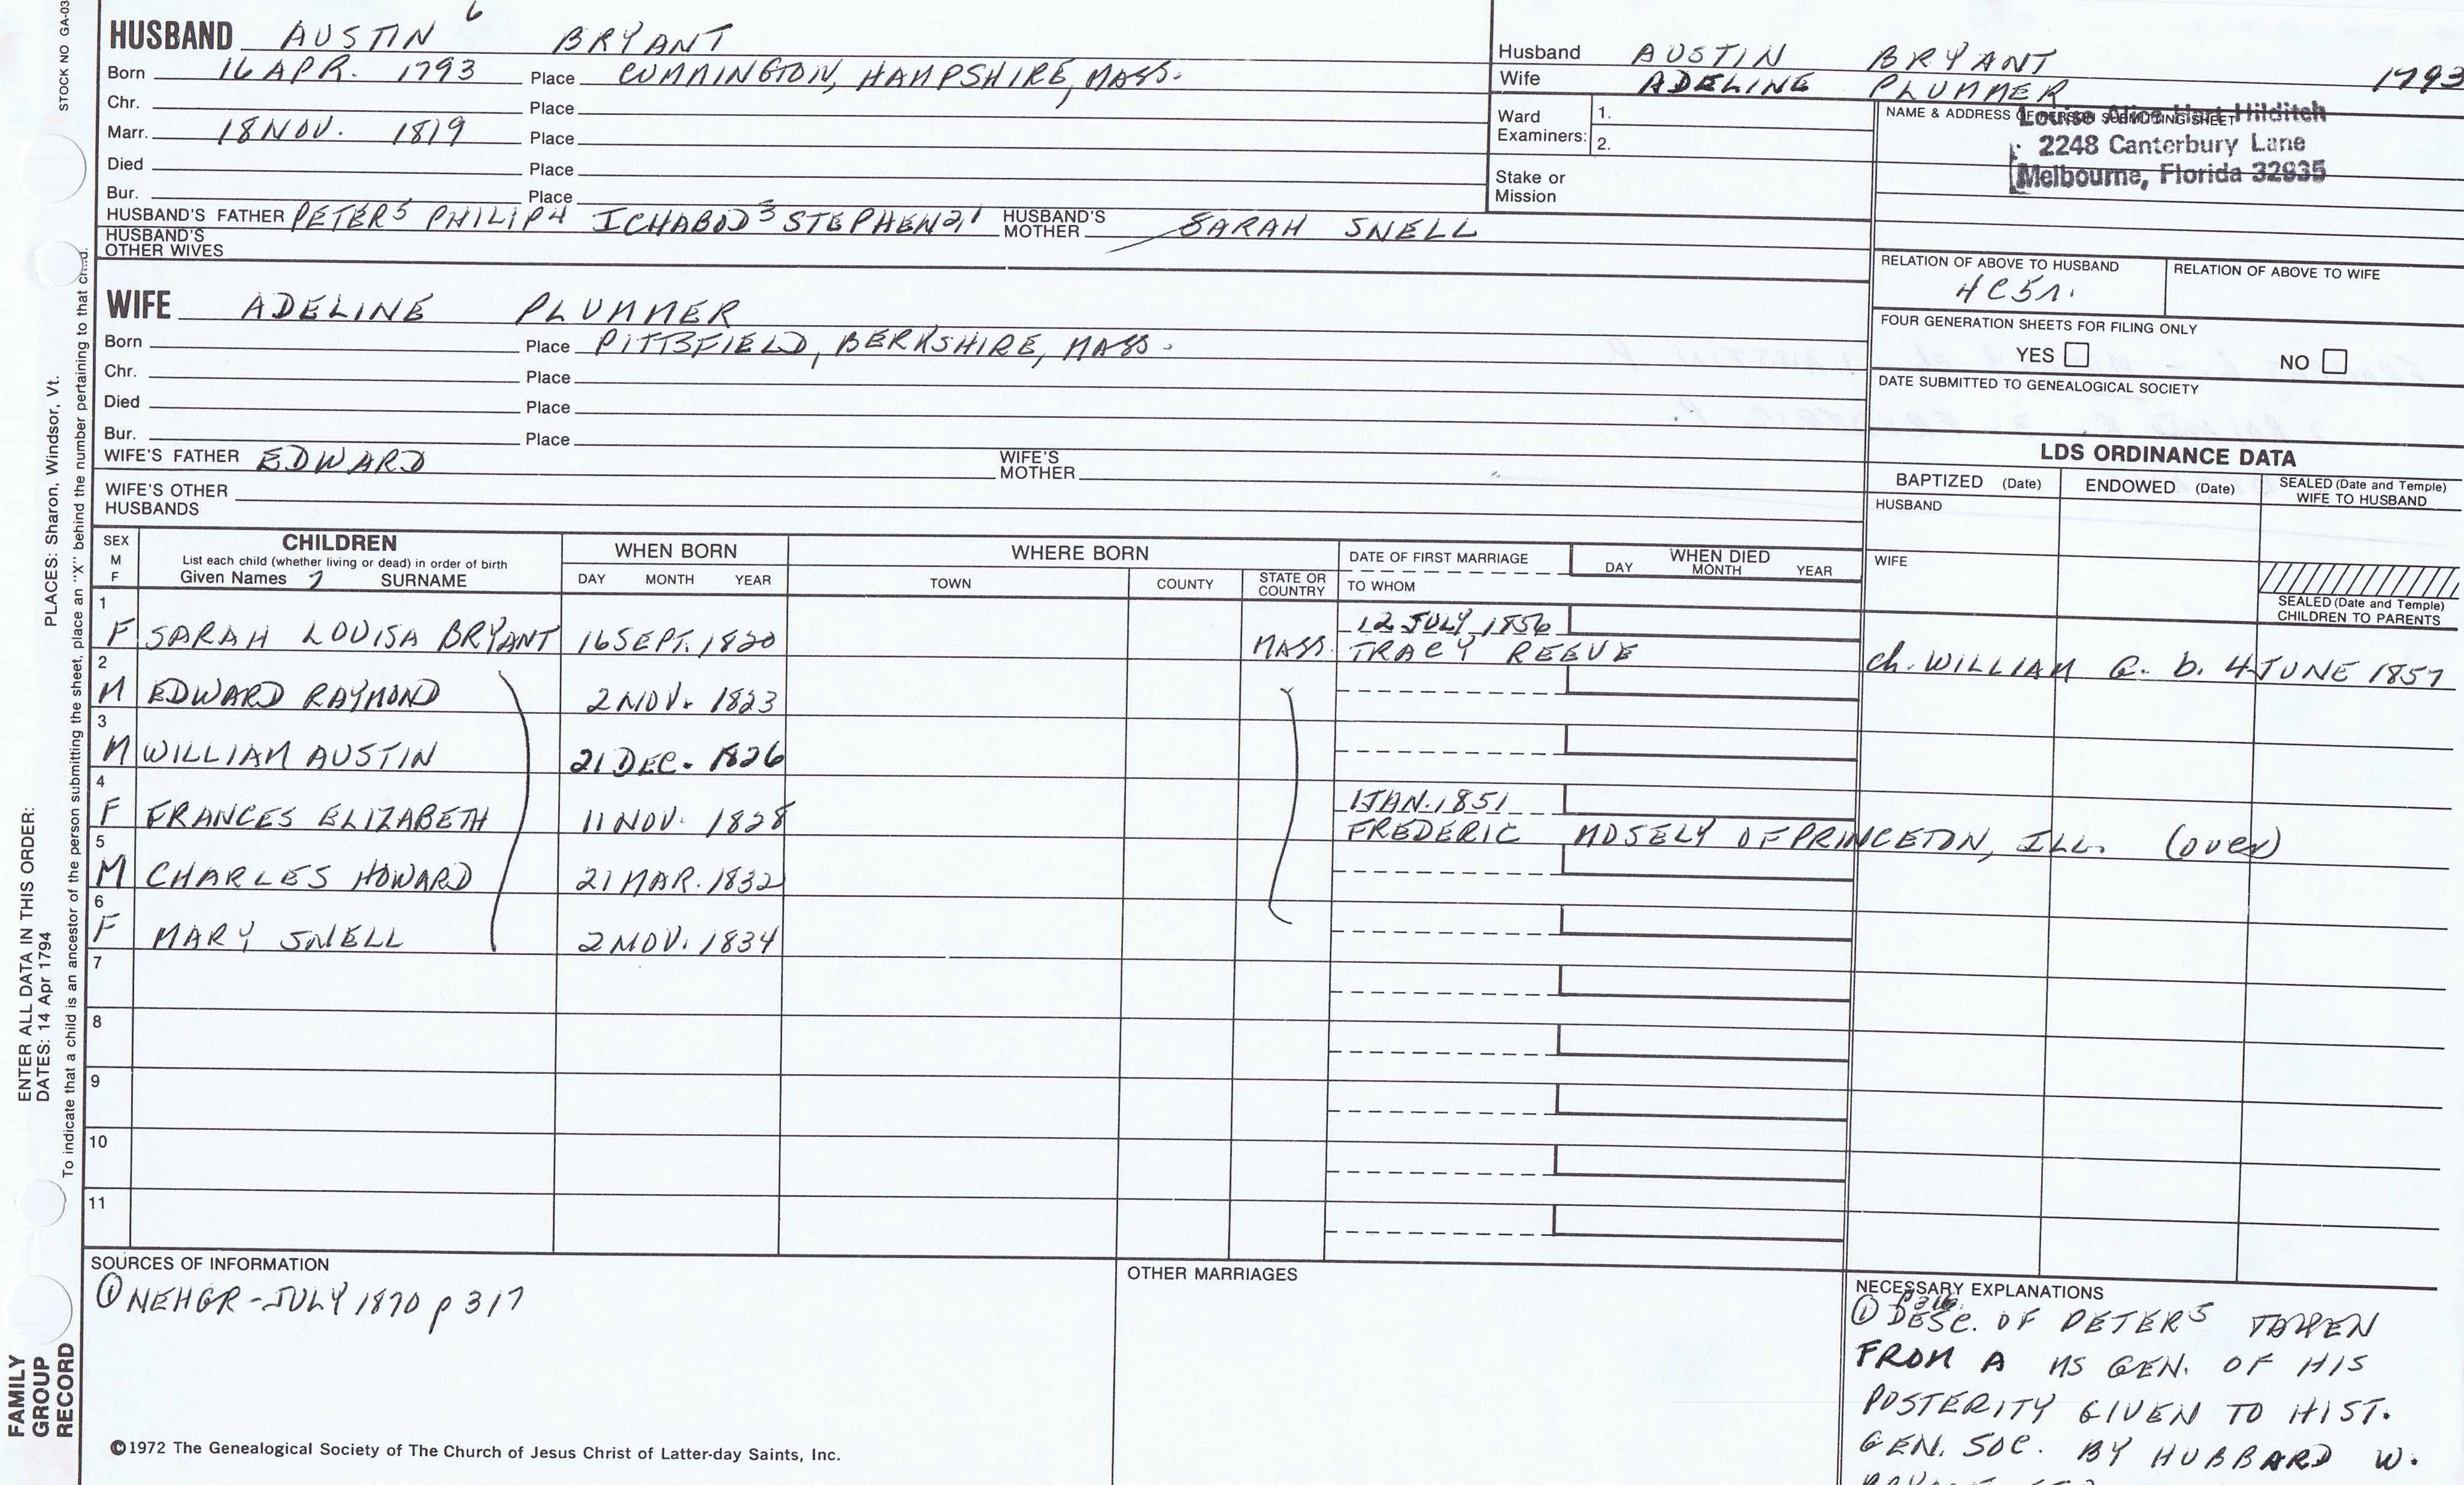 STOCK NO GA-03
HUSBAND AUSTIN 6 BRYANT
Born 16 APR. 1793 Place CUMMINGTON, HAMPSHIRE, MASS.
Chr. Place
Marr. 18 NOV. 1819 Place
Died Place
Bur. Place
HUSBAND'S FATHER PETER5 PHILIP4 ICHABOD3 STEPHEN21 HUSBAND'S MOTHER SARAH SNELL
HUSBAND'S OTHER WIVES
Husband AUSTIN BRYANT 1793
Wife ADELINE PLUMMER
Ward Examiners: 1.
2.
Stake or Mission
NAME & ADDRESS OF PERSON SUBMITTING SHEET
Louise Alice Hart Hilditch
2248 Canterbury Lane
Melbourne, Florida 32935
RELATION OF ABOVE TO HUSBAND RELATION OF ABOVE TO WIFE
4C5r.
FOUR GENERATION SHEETS FOR FILING ONLY
YES NO
DATE SUBMITTED TO GENEALOGICAL SOCIETY
WIFE ADELINE PLUMMER
Born Place PITTSFIELD, BERKSHIRE, MASS.
Chr. Place
Died Place
Bur. Place
WIFE'S FATHER EDWARD WIFE'S MOTHER
WIFE'S OTHER HUSBANDS
LDS ORDINANCE DATA
BAPTIZED (Date) ENDOWED (Date) SEALED (Date and Temple) WIFE TO HUSBAND
HUSBAND
WIFE
SEALED (Date and Temple) CHILDREN TO PARENTS
SEX M F
CHILDREN
List each child (whether living or dead) in order of birth
Given Names 7 SURNAME
WHEN BORN
DAY MONTH YEAR
WHERE BORN
TOWN COUNTY STATE OR COUNTRY
DATE OF FIRST MARRIAGE
TO WHOM
WHEN DIED
DAY MONTH YEAR
1 12 JULY 1856
F SARAH LOUISA BRYANT 16 SEPT. 1820 MASS. TRACY REEVE ch. WILLIAM C. b. 4 JUNE 1857
2
M EDWARD RAYMOND 2 NOV. 1823
3
M WILLIAM AUSTIN 21 DEC. 1826
4 1 JAN. 1851
F FRANCES ELIZABETH 11 NOV. 1828 FREDERIC MOSELY OF PRINCETON, ILL. (over)
5
M CHARLES HOWARD 21 MAR. 1832
6
F MARY SNELL 2 NOV. 1834
7
8
9
10
11
SOURCES OF INFORMATION
① NEHGR - JULY 1870 p 317
OTHER MARRIAGES
NECESSARY EXPLANATIONS
p 316
① DESC. OF PETER5 TAKEN
FROM A MS GEN. OF HIS
POSTERITY GIVEN TO HIST.
GEN. SOC. BY HUBBARD W.
©1972 The Genealogical Society of The Church of Jesus Christ of Latter-day Saints, Inc.
FAMILY GROUP RECORD
ENTER ALL DATA IN THIS ORDER:
DATES: 14 Apr 1794
PLACES: Sharon, Windsor, Vt.
To indicate that a child is an ancestor of the person submitting the sheet, place an "X" behind the number pertaining to that child.